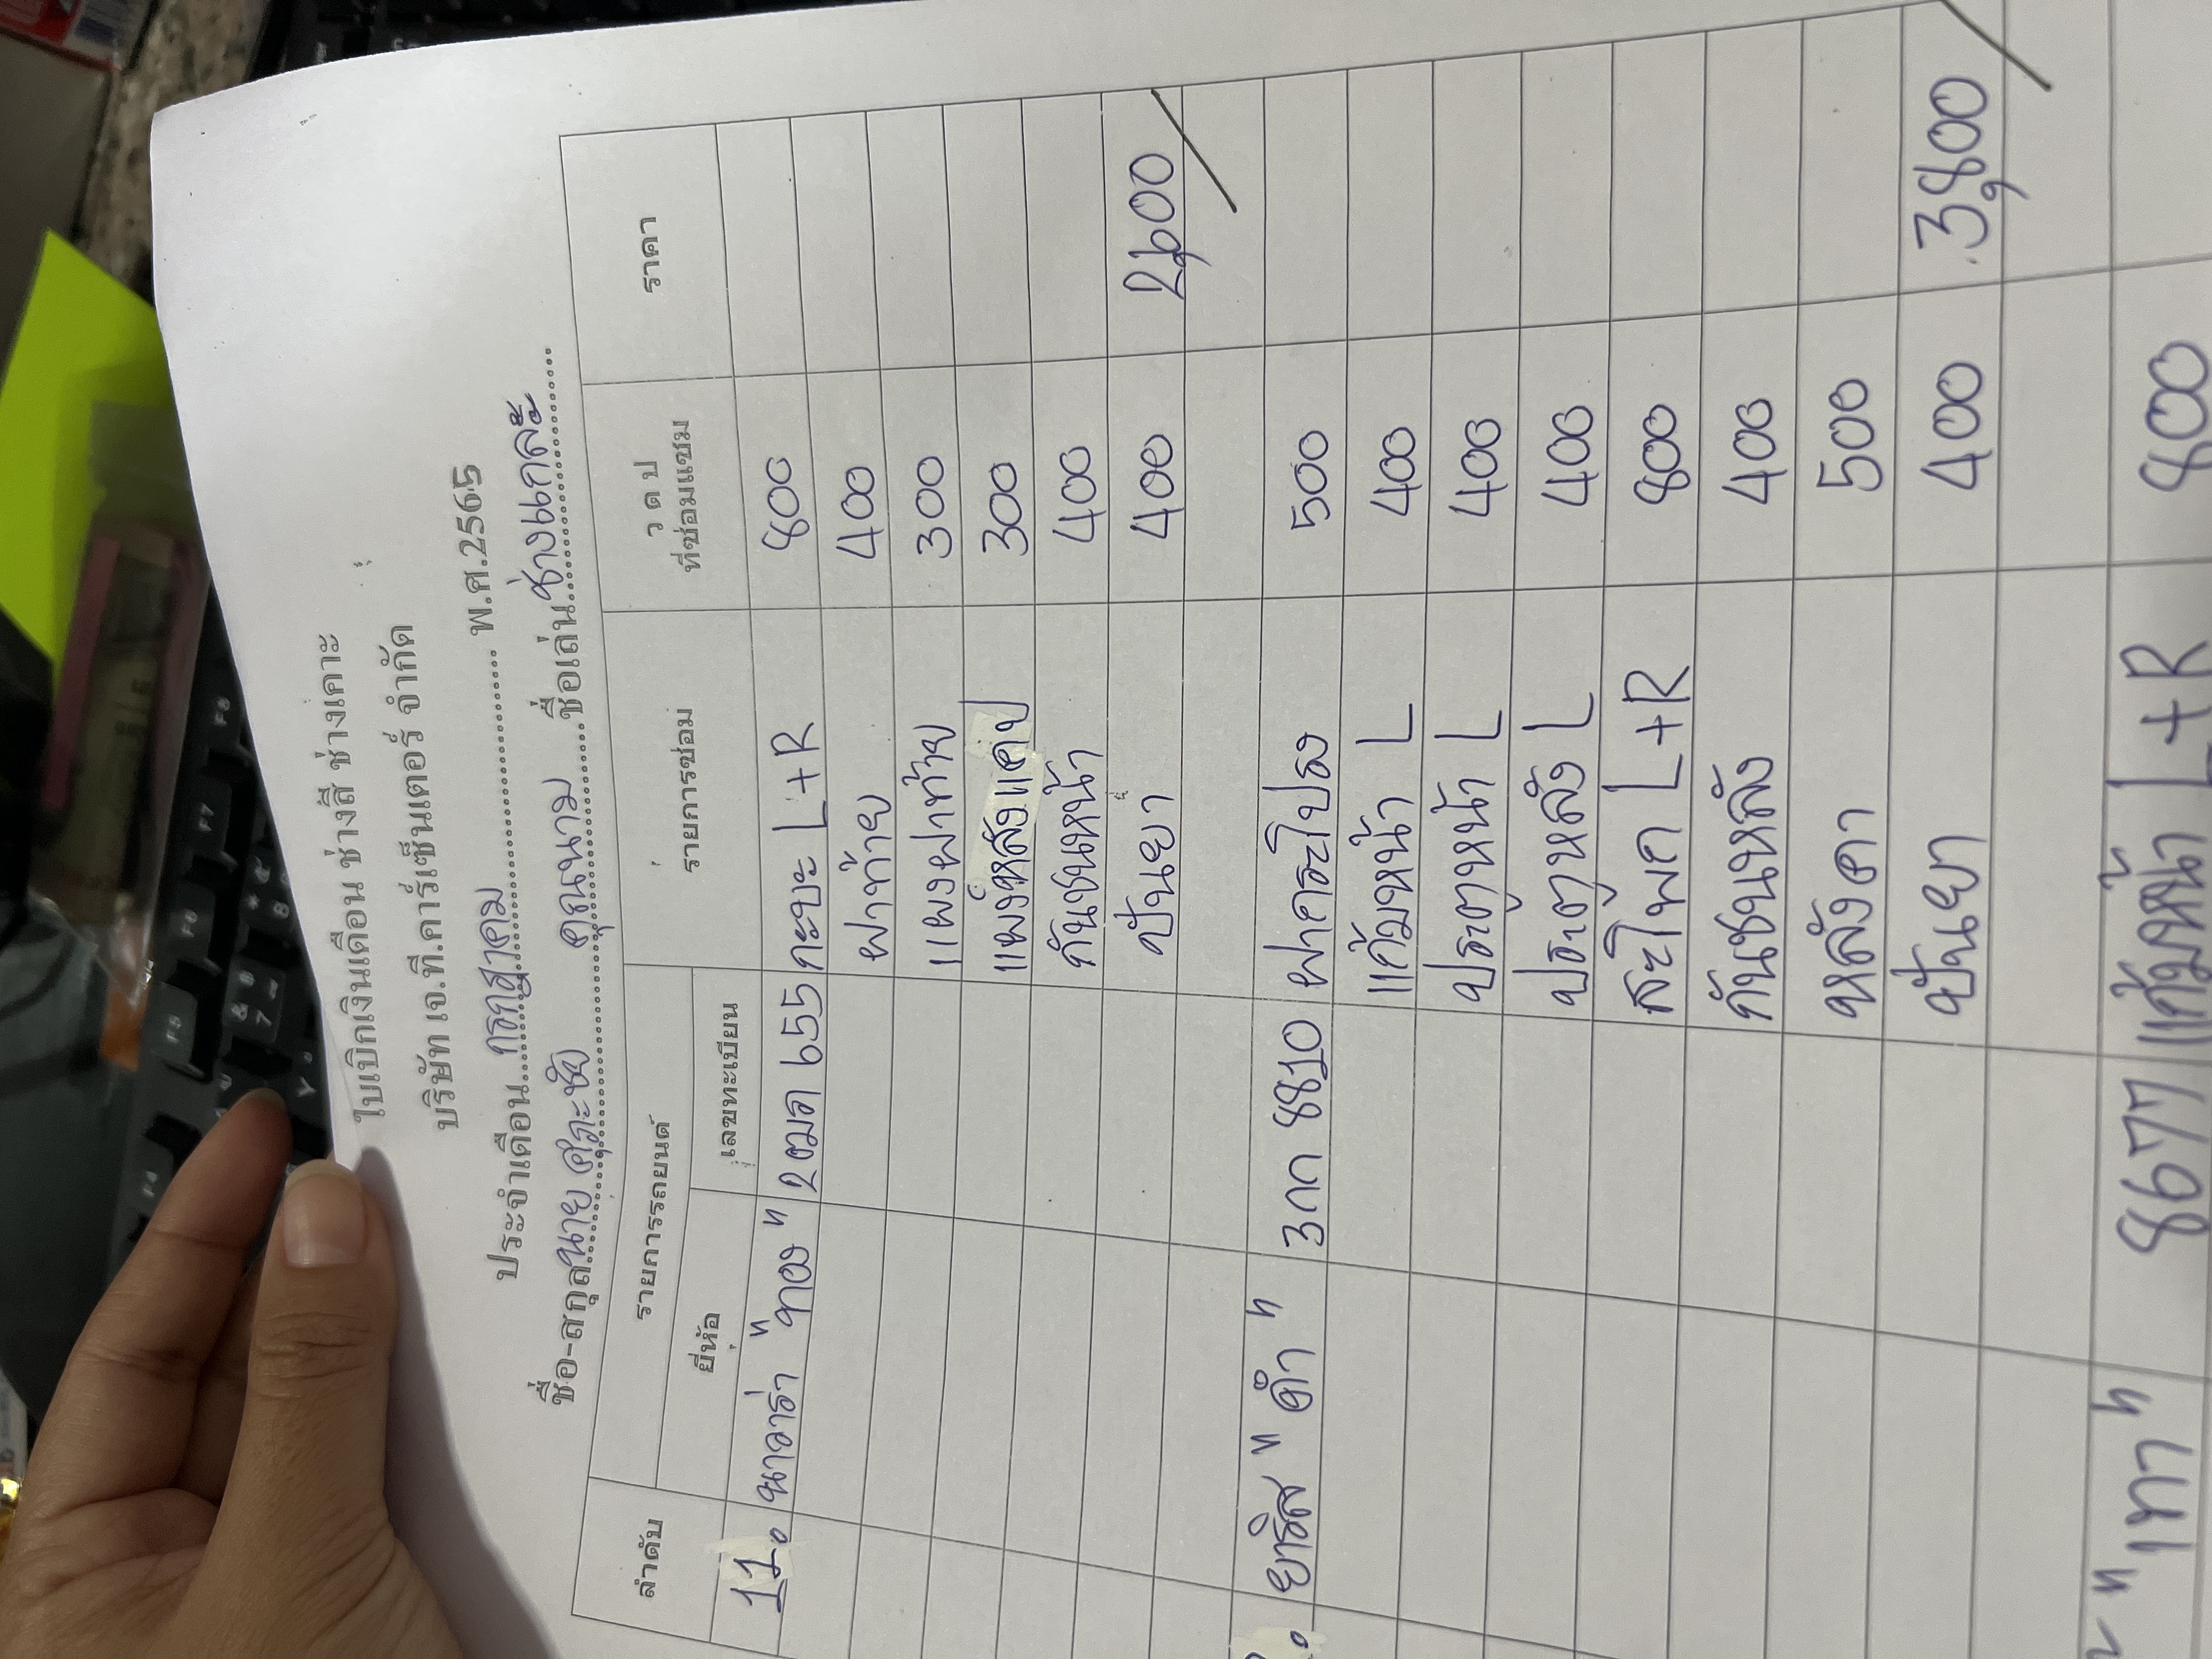 ใบเบิกเงินเดือน ช่างสี ช่างเคาะ
บริษัท เจ.ที.คาร์เซ็นเตอร์ จำกัด
ประจำเดือน กรกฎาคม พ.ศ.2565
ชื่อ-สกุล นาย คุณนาม ชื่อเล่น ช่างแกละ
ลำดับ รายการรถยนต์ รายการซ่อม ว ด ป ที่ซ่อมแซม ราคา
ยี่ห้อ เลขทะเบียน
11. นาวาร่า "ทอง" 2ฒก 655 กะบะ L+R 800
ฝาท้าย 400
แผงฝาท้าย 300
แผงหลังแคป 300
กันชนหน้า 400
ปั่นยา 400 2,600
ยาริส "ดำ" 3กก 8810 ฝากระโปรง 500
แก้มหน้า L 400
ประตูหน้า L 400
ประตูหลัง L 400
สะโพก L+R 800
กันชนหลัง 400
หลังคา 500
ปั่นยา 400 3,800
"เทา" 8677 แก้มหน้า L+R 800